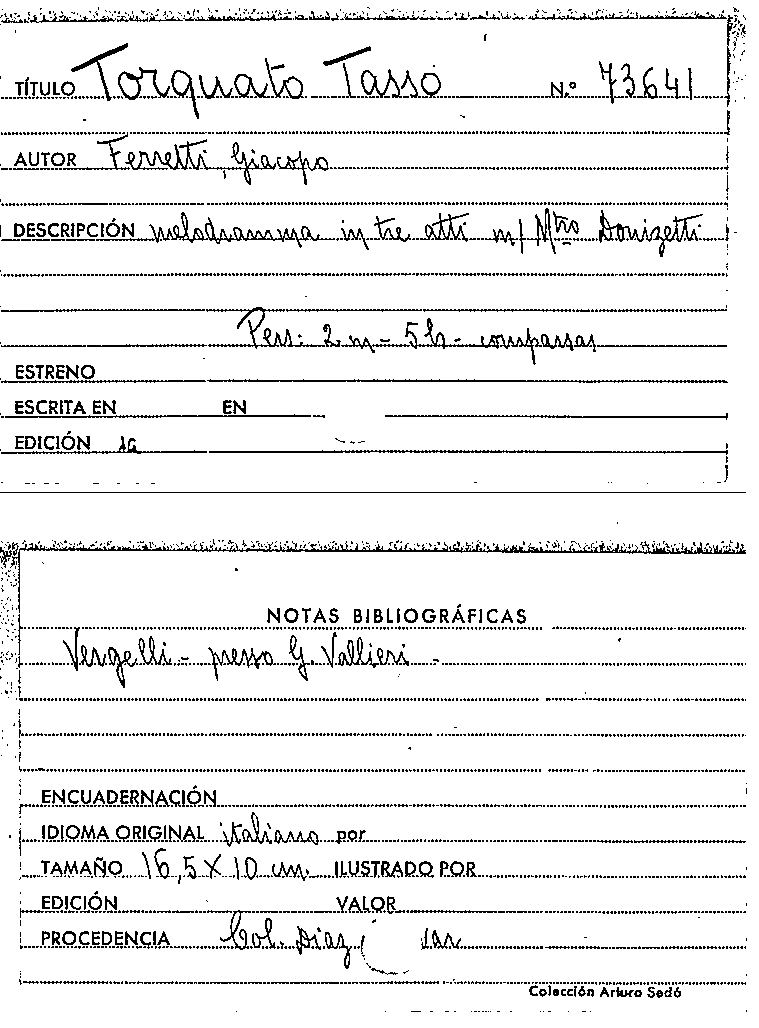 TÍTULO Torquato Tasso N.º 73641
AUTOR Ferretti, Giacopo
DESCRIPCIÓN melodramma in tre atti m/ Mtro Donizetti
Pers: 2 m - 5 h - comparsas
ESTRENO
ESCRITA EN EN
EDICIÓN
NOTAS BIBLIOGRÁFICAS
Vergelli - presso G. Vallieri -
ENCUADERNACIÓN
IDIOMA ORIGINAL italiano por
TAMAÑO 16,5 X 10 cm. ILUSTRADO POR
EDICIÓN VALOR
PROCEDENCIA Col. Díaz
Colección Arturo Sedó